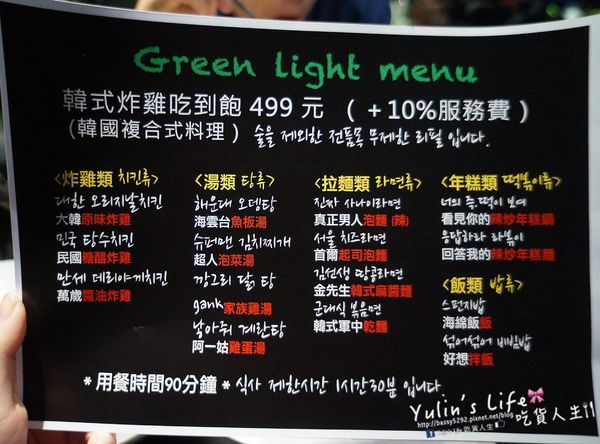 Green light menu
韓式炸雞吃到飽 499 元 ( +10%服務費 )
(韓國複合式料理) 술을 제외한 전품목 무제한 리필 입니다.
<炸雞類 치킨류>
대한 오리지날치킨
大韓原味炸雞
민국 탕수치킨
民國糖醋炸雞
만세 데리야끼치킨
萬歲醬油炸雞
<湯類 탕류>
해운대 오뎅탕
海雲台魚板湯
슈퍼맨 김치찌개
超人泡菜湯
깡그리 닭 탕
gank家族雞湯
날아줘 계란탕
阿一姑雞蛋湯
<拉麵類 라면류>
진짜 사나이라면
真正男人泡麵 (辣)
서울 치즈라면
首爾起司泡麵
김선생 땅콩라면
金先生韓式麻醬麵
군대식 볶음면
韓式軍中乾麵
<年糕類 떡볶이류>
너의 죽.떡이 보여
看見你的辣炒年糕鍋
응답하라 라볶이
回答我的辣炒年糕麵
<飯類 밥류>
스펀지밥
海綿飯飯
섞어섞어 비빔밥
好想拌飯
*用餐時間90分鐘* 식사 제한시간 1시간30분 입니다
Yulin's Life
http://bassy5292.pixnet.net/blog
吃貨人生!!
Yulin's Life 吃貨人生